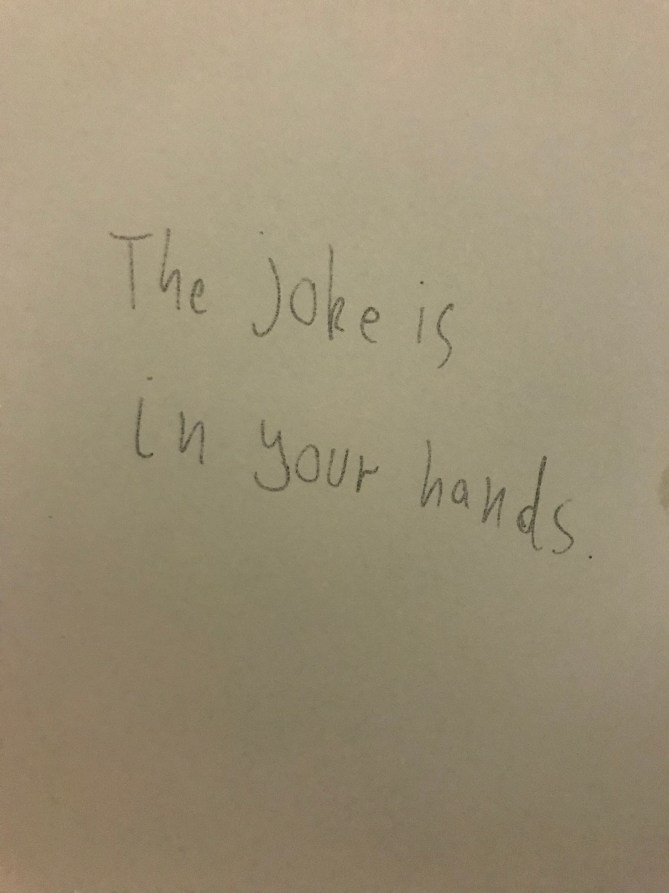 The joke is
in your hands.